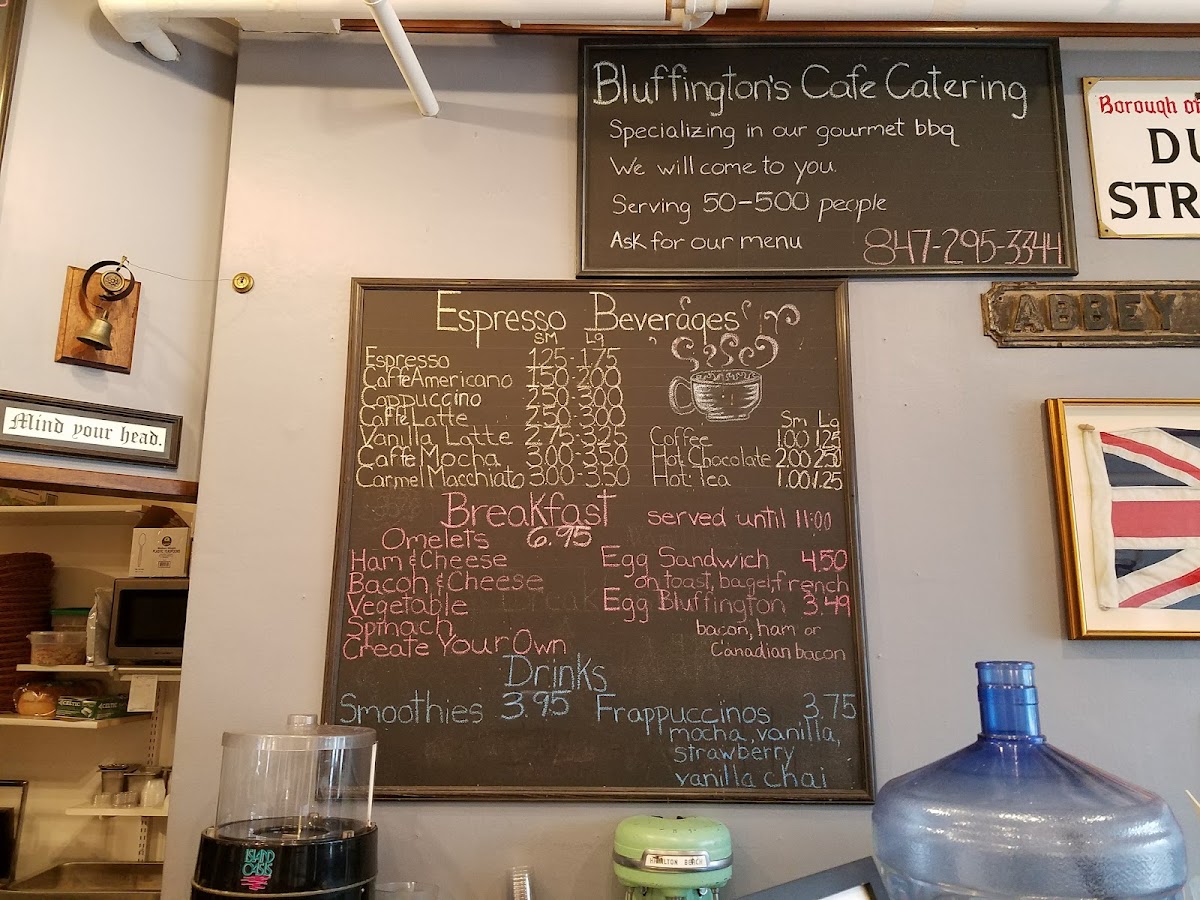 Bluffington's Cafe Catering
Specializing in our gourmet bbq
We will come to you.
Serving 50-500 people
Ask for our menu 847-295-3344
Borough of
DU
STR
ABBEY
Mind your head.
Espresso Beverages
SM Lg
Espresso 125-175
Caffe Americano 150-200
Cappuccino 250-300
Caffe Latte 250-300
Vanilla Latte 275-325
Caffe Mocha 300-350
Carmel Macchiato 300-350
Sm Lg
Coffee 1.00 1.25
Hot Chocolate 2.00 250
Hot Tea 1.00 1.25
Breakfast served until 11:00
Omelets 6.95
Ham & Cheese
Bacon & Cheese
Vegetable
Spinach
Create Your Own
Egg Sandwich 4.50
on toast, bagel, french
Egg Bluffington 3.49
bacon, ham or
Canadian bacon
Drinks
Smoothies 3.95
Frappuccinos 3.75
mocha, vanilla,
strawberry
vanilla chai
ISLAND
OASIS
HAMILTON BEACH